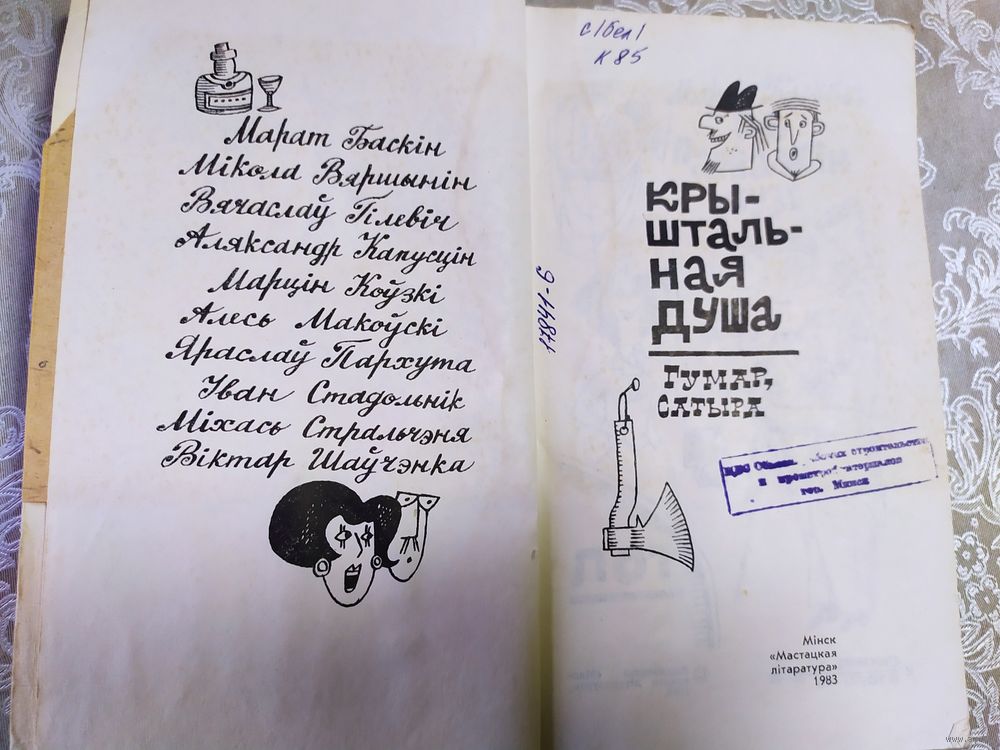 Марат Баскін
Мікола Вяршынін
Вячаслаў Гілевіч
Аляксандр Капусцін
Марцін Коўзкі
Алесь Макоўскі
Яраслаў Пархута
Іван Стадольнік
Міхась Стральчэня
Віктар Шаўчэнка
с/бел/
К 85
17841-6
КРЫ-
ШТАЛЬ-
НАЯ
ДУША
ГУМАР,
САТЫРА
ЦБС строительства
и
гор. Минск
Мінск
«Мастацкая
літаратура»
1983